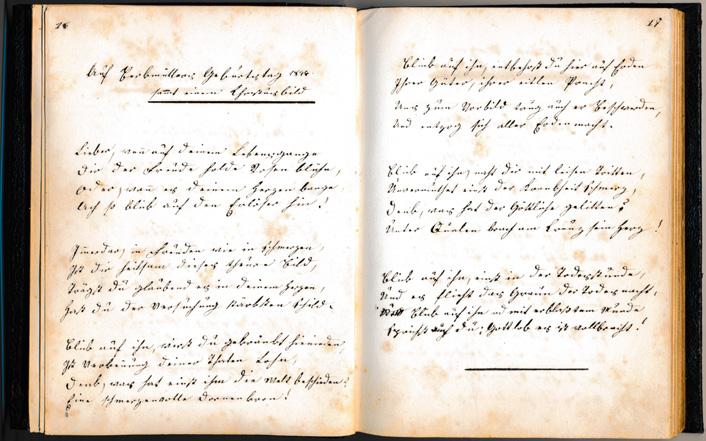 16
Auf Rebmüllers Geburtstag
samt einem Christusbild
Lieber, wenn auf deinem Lebensgange
Dir der Freude holde Rosen blühn,
Oder, wenn es deinem Herzen bange
Ach so blick auf den Erlöser hin!
Immerdar, in Freuden wie in Schmerzen,
Ist dir heilsam dieses theure Bild,
Trägst du glaubend es in deinem Herzen,
Hast du der Versuchung stärksten Schild.
Blick auf ihn, wirst du gekränkt hienieden,
Ist Verkennung deiner Thaten Lohn,
Denk, was hat einst ihm die Welt beschieden?
Eine schmerzenvolle Dornenkron!
17
Blick auf ihn, entbehrst du hier auf Erden
Ihrer Güter, ihrer eitlen Pracht,
Uns zum Vorbild trug auch er Beschwerden,
Und entzog sich aller Erdenmacht.
Blick auf ihn, naht dir mit leisen Tritten,
Unvermuthet einst der Krankheit Schmerz,
Denk, was hat der Göttliche gelitten?
Unter Qualen brach am Kreuz sein Herz!
Blick auf ihn, einst in der Todesstunde,
Und es flieht das Graun der Todesnacht,
Blick auf ihn und mit erblaßtem Munde
Sprichst auch du: Gottlob es ist vollbracht!